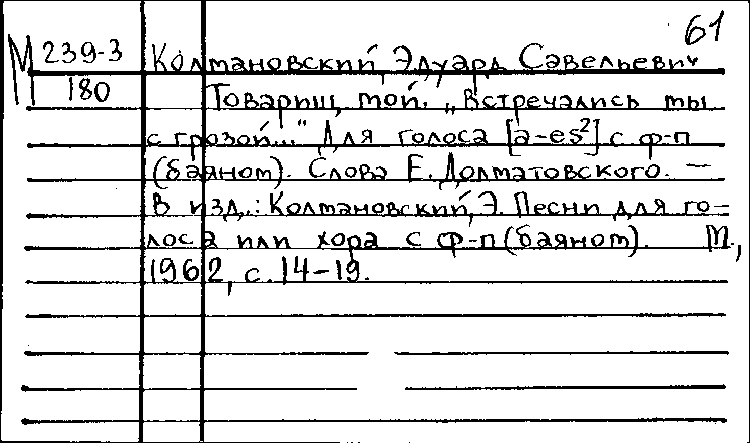 61
М 239-3 Колмановский, Эдуард Савельевич
180 Товарищ мой. „Встречались мы
с грозой..." Для голоса [a-es²] с ф-п
(баяном). Слова Е. Долматовского. —
В изд.: Колмановский, Э. Песни для го-
лоса или хора с ф-п (баяном). М.,
1962, с. 14-19.